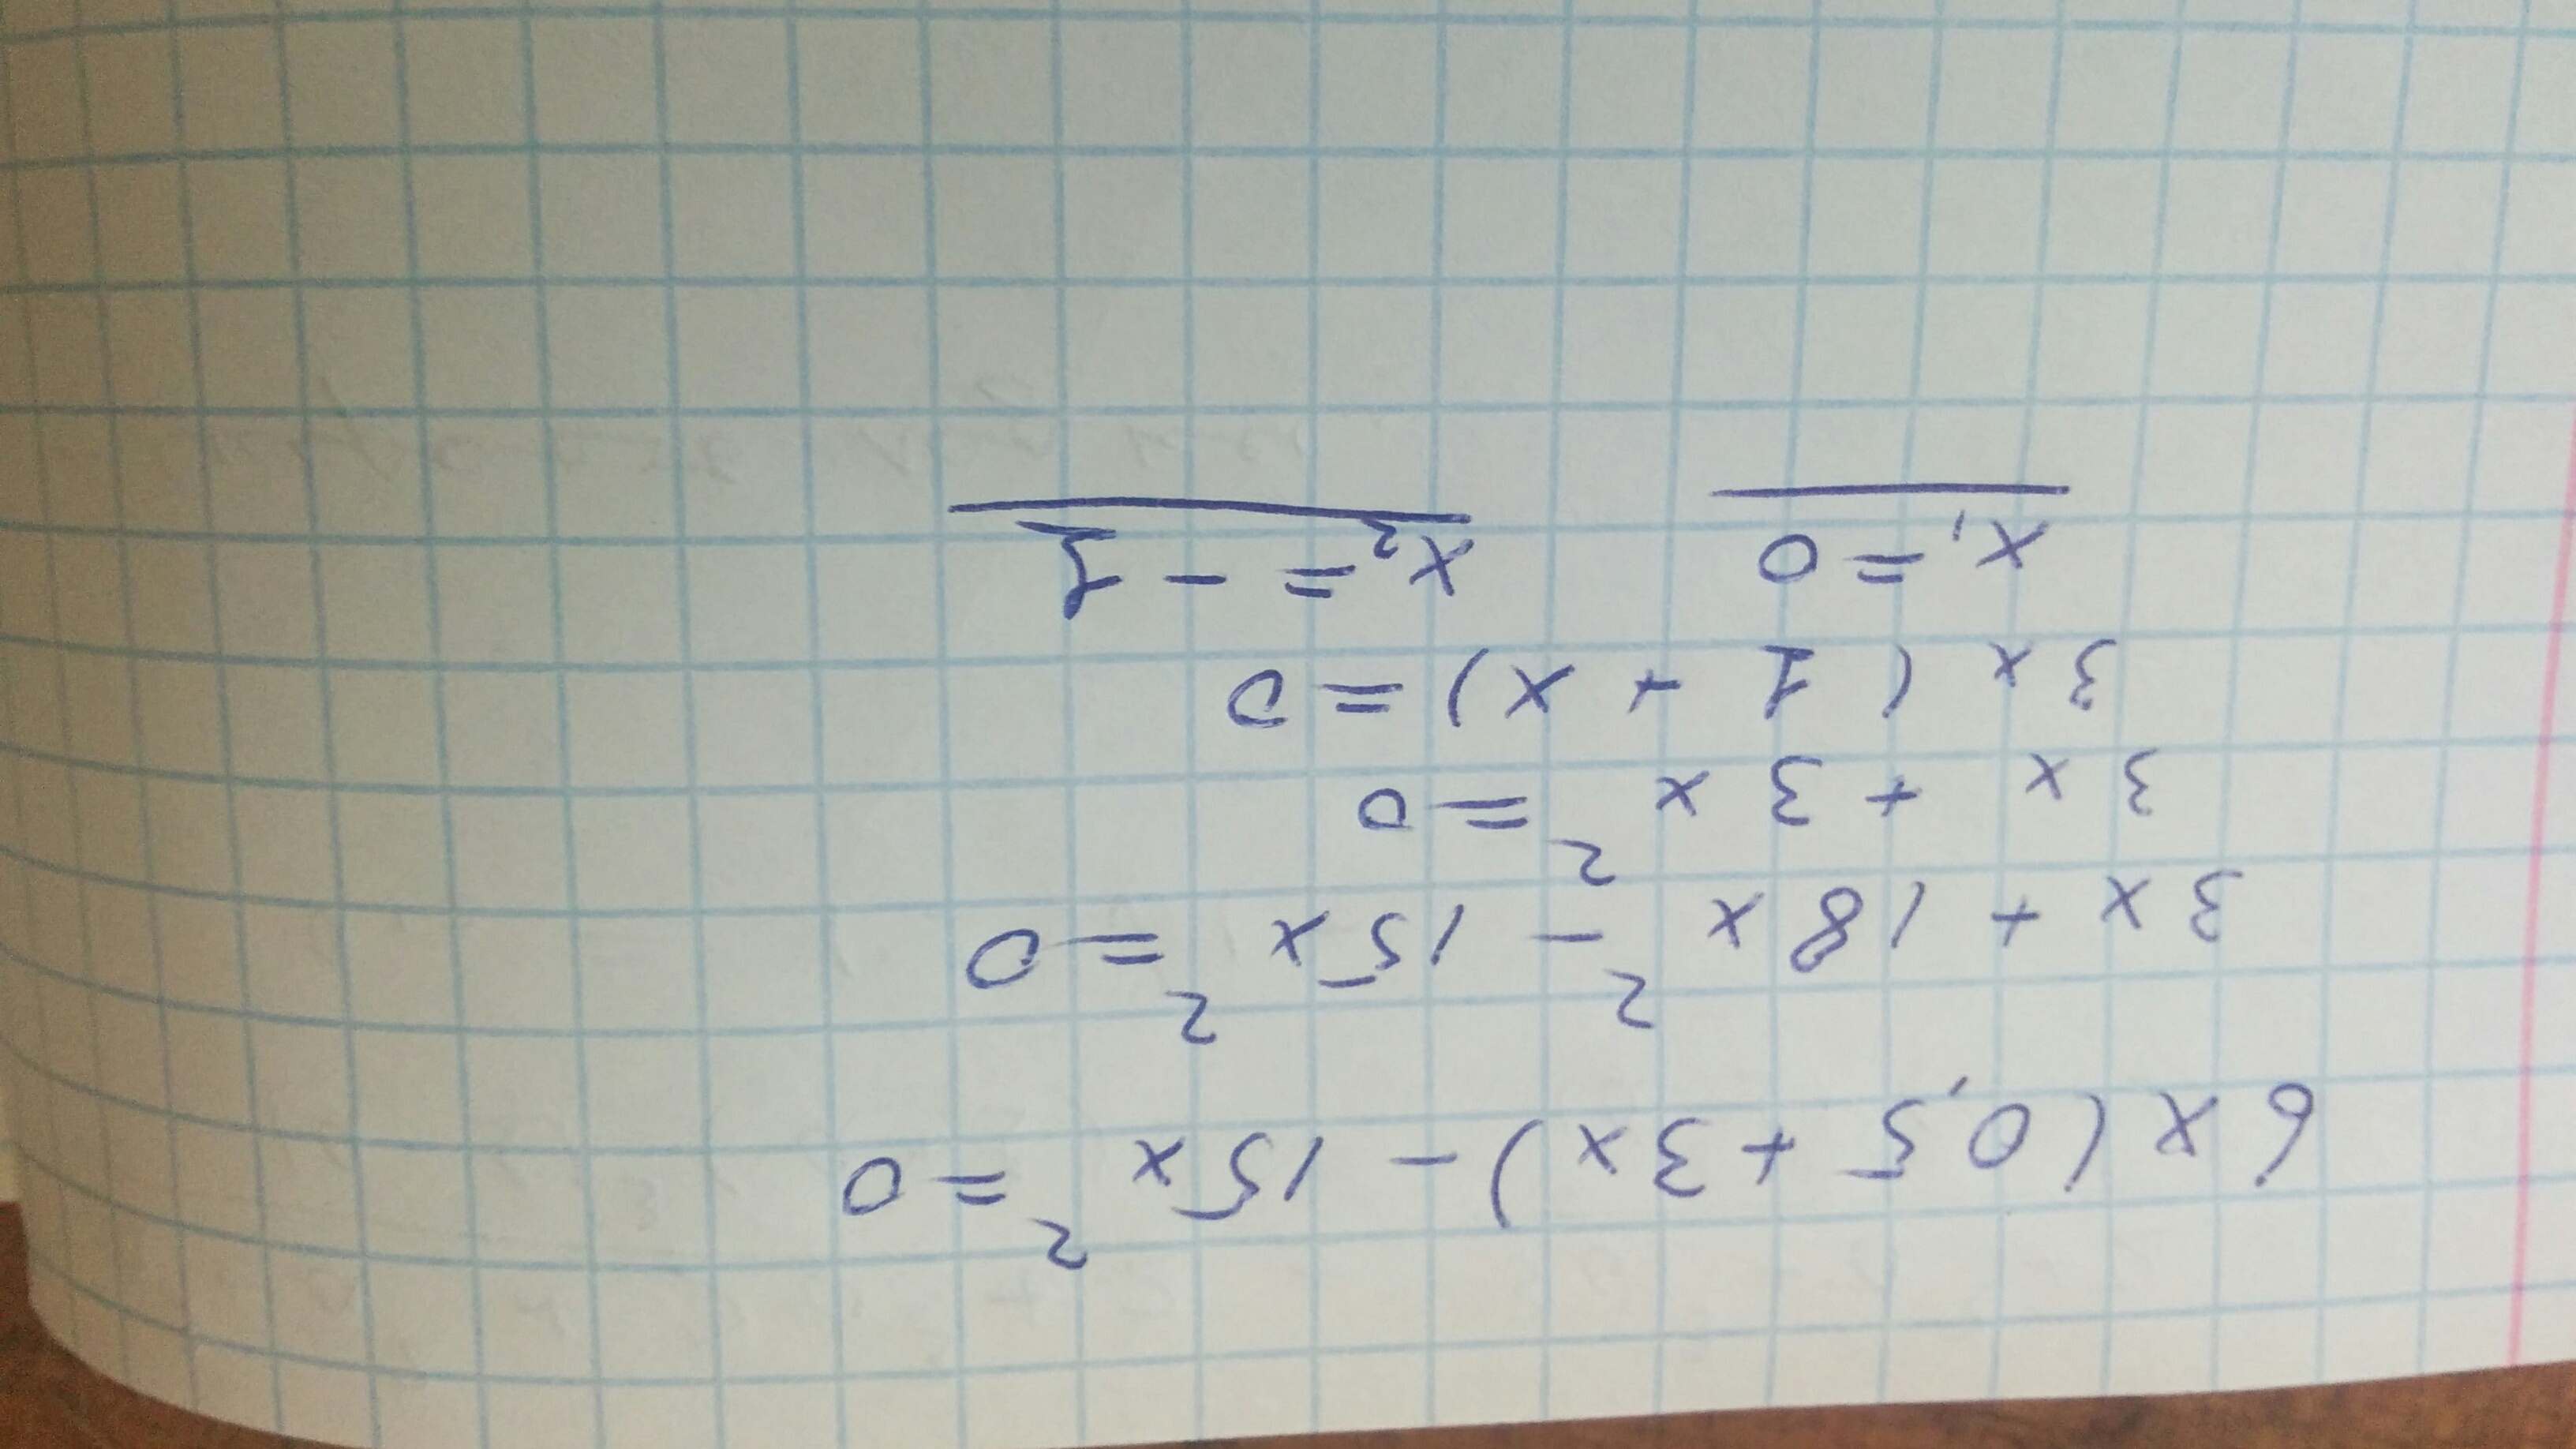 6x(0,5+3x)-15x²=0
3x+18x²-15x²=0
3x+3x²=0
3x(1+x)=0
x₁=0 x₂=-1